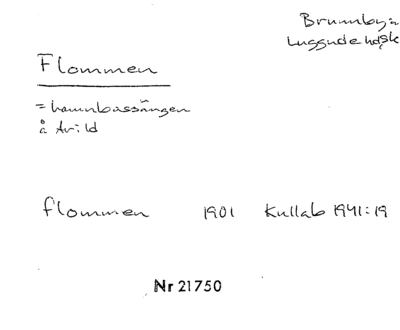 Brunnby:n
Luggude hdsk
Flommen
= hamnbassängen
å Arild
flommen 1901 Kullab 1941:19
Nr 21750